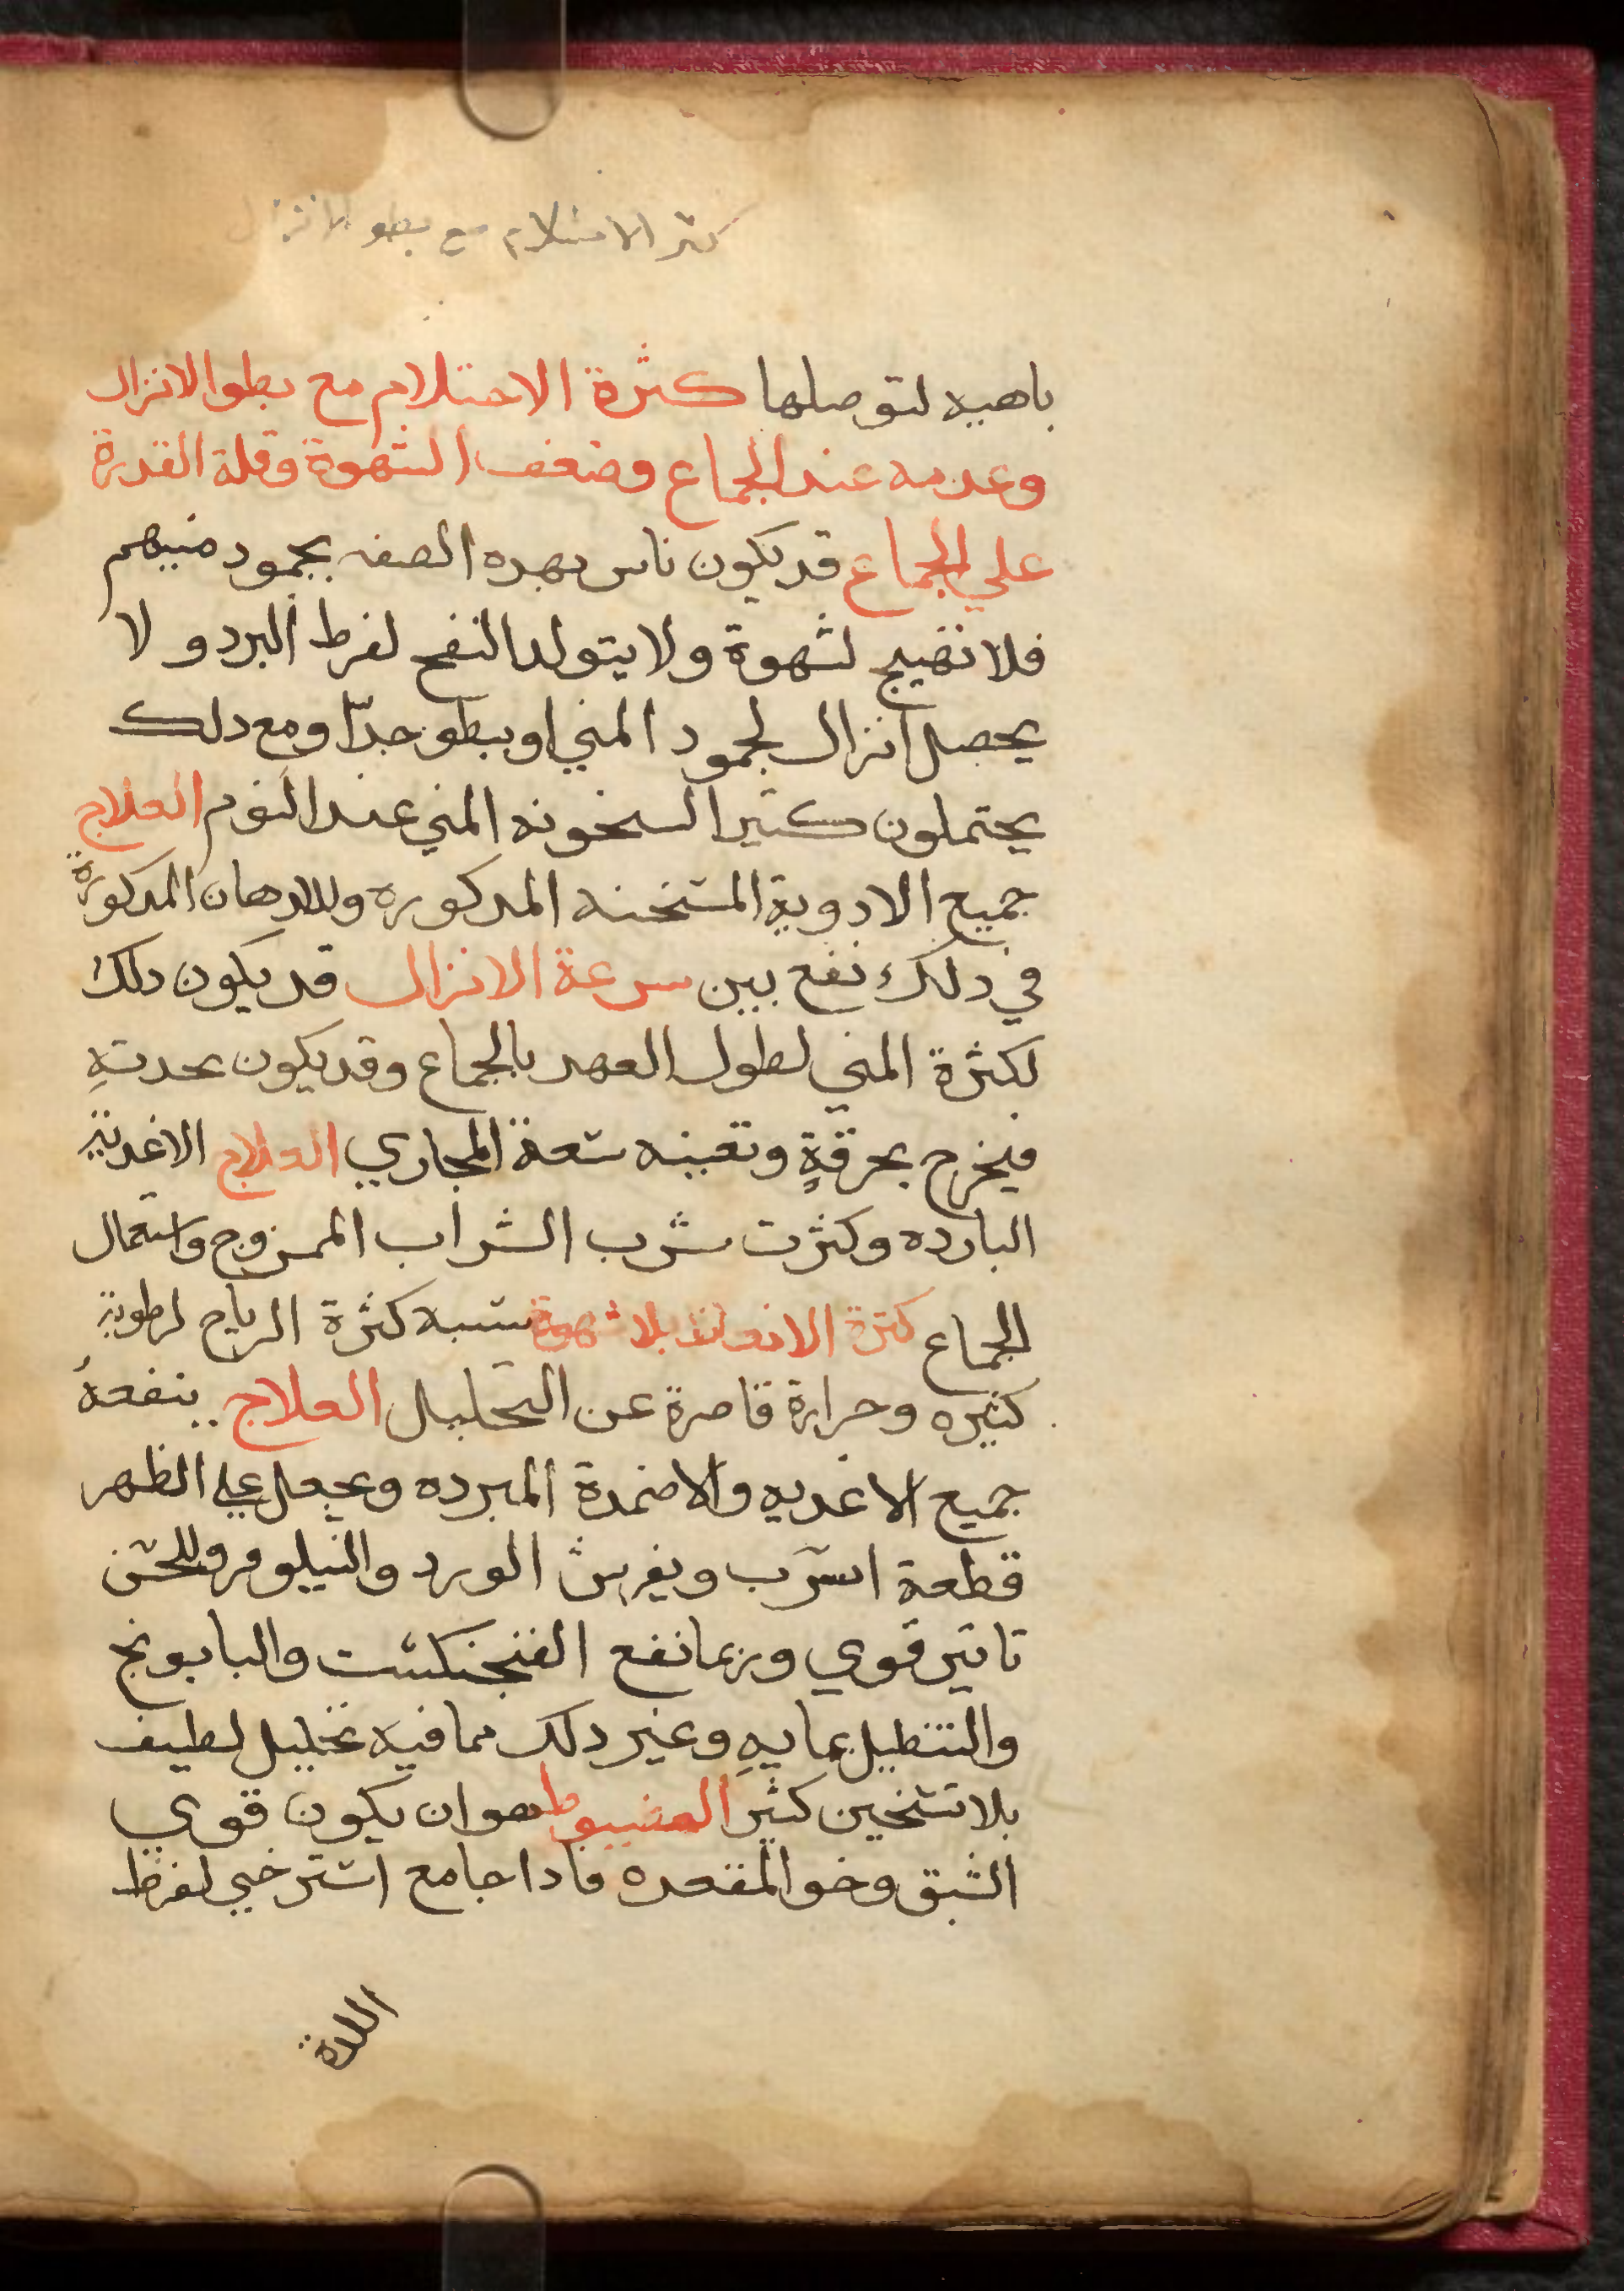 كثر الاحتلام مع بطو الانزال
باهيه لتوصلها كثرة الاحتلام مع بطو الانزال
وعدمه عند الجماع وضعف الشهوة وقلة القدرة
علي الجماع قد يكون ناس بهده الصفه بجمود منيهم
فلا تهيج لشهوة ولا يتولد النفح لفرط البرد و لا
يحصل انزال لجمود المني او يبطو جدّا ومع دلك
يحتملون كثيرا لسخونه المني عند النوم العلاج
جميع الادوية المسخنه المدكوره وللادهان المدكورة
في دلك نفع بين سرعة الانزال قد يكون دلك
لكثرة المني لطول العهد بالجماع وقد يكون بحدتهِ
فيخرج بحرقةٍ وتعينه سعة المجاري العلاج الاغدية
البارده وكثرت شرب الشراب الممزوج واستعمال
الجماع كثرة الانعاظ بلا شهوة سببه كثرة الرياح لرطوبة
كثيره وحرارة قاصرة عن التحليل العلاج ينفعهُ
جميع الاغديه والاضمدة المبرده ويجعل علي الظهر
قطعة اسرب ويفرش الورد والنيلوفر وللخس
تاثير قوي وربما نفع الفنجنكست والبابونج
والتنطيل بمايهِ وغير دلك مما فيه تحليل لطيف
بلا تسخين كثير العضيوط هو ان يكون قوي
الشبق رخو المقعده فادا جامع استرخي لفرط
اللدة